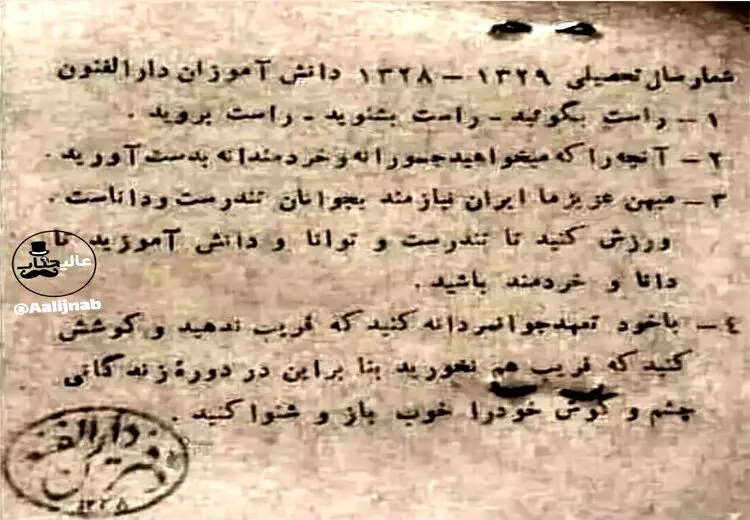 شعار سال تحصیلی ۱۳۲۹ – ۱۳۲۸ دانش آموزان دارالفنون
۱ – راست بگوئید – راست بشنوید – راست بروید .
۲ – آنچه را که میخواهید جسورانه و خردمندانه بدست آورید .
۳ – میهن عزیز ما ایران نیازمند بجوانان تندرست و داناست .
ورزش کنید تا تندرست و توانا و دانش آموزید تا
دانا و خردمند باشید .
۴ – باخود تعهد جوانمردانه کنید که فریب ندهید و کوشش
کنید که فریب هم نخورید بنا براین در دورهٔ زندگانی
چشم و گوش خودرا خوب باز و شنوا کنید .
عالیجناب
@Aalijnab
دارالفنون